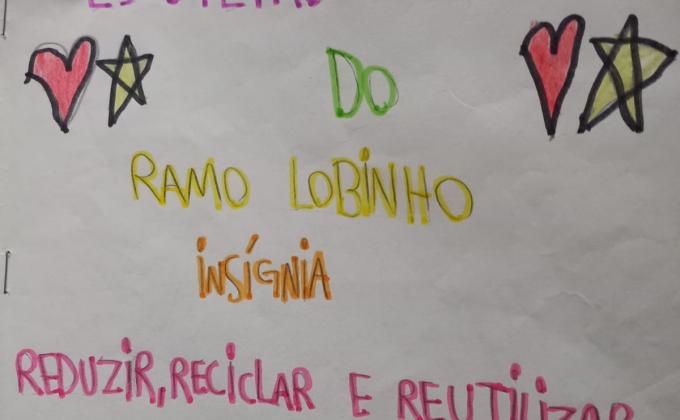 DO
RAMO LOBINHO
INSÍGNIA
REDUZIR, RECICLAR E REUTILIZAR